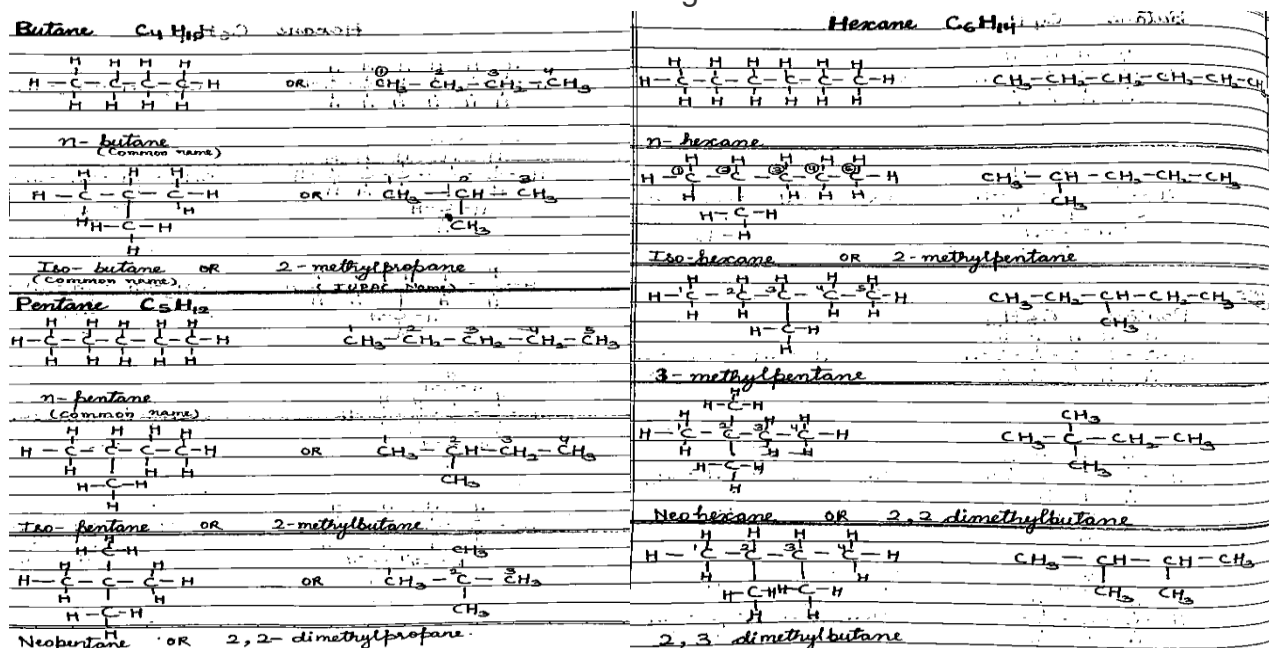 Butane C4 H10
H H H H
H - C - C - C - C - H OR CH3 - CH2 - CH2 - CH3
H H H H
n- butane
(Common name)
H H H
H - C - C - C - H OR CH3 - CH - CH3
H H
H - C - H CH3
H
Iso- butane OR 2-methylpropane
(Common name) (IUPAC Name)
Pentane C5H12
H H H H H
H - C - C - C - C - C - H CH3 - CH2 - CH2 - CH2 - CH3
H H H H H
n- pentane
(Common name)
H H H H
H - C - C - C - C - H OR CH3 - CH - CH2 - CH3
H H H
H - C - H CH3
H
Iso- pentane OR 2-methylbutane
H - C - H CH3
H - C - C - C - H OR CH3 - C - CH3
H - C - H CH3
H
Neopentane OR 2,2- dimethylpropane.
Hexane C6H14
H H H H H H
H - C - C - C - C - C - C - H CH3 - CH2 - CH2 - CH2 - CH2 - CH3
H H H H H H
n- hexane
H H H H H
H - C - C - C - C - C - H CH3 - CH - CH2 - CH2 - CH3
H H H H
H - C - H CH3
H
Iso-hexane OR 2-methylpentane
H - C - C - C - C - C - H CH3 - CH2 - CH - CH2 - CH3
H H H H
H - C - H CH3
H
3- methylpentane
H
H - C - H CH3
H - C - C - C - C - H CH3 - C - CH2 - CH3
H - C - H CH3
H
Neohexane OR 2,2 dimethylbutane
H H H H
H - C - C - C - C - H CH3 - CH - CH - CH3
H H
H - C - H H - C - H CH3 CH3
H H
2,3 dimethylbutane